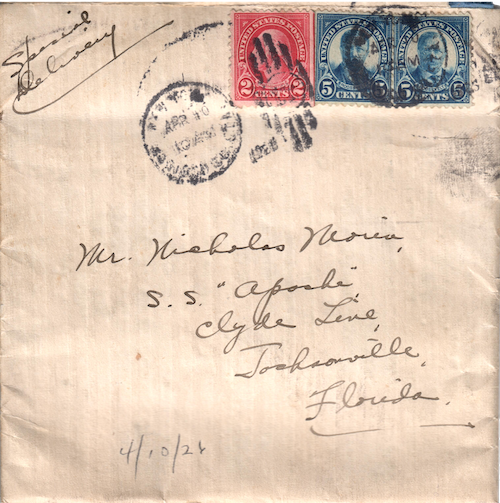 Special
delivery
UNITED STATES POSTAGE
2 CENTS 2
UNITED STATES POSTAGE
5 CENTS 5
UNITED STATES POSTAGE
5 CENTS 5
APR 10
Mr. Nicholas Moria,
S.S. "Apache",
Clyde Line,
Jacksonville,
Florida.
4/10/28